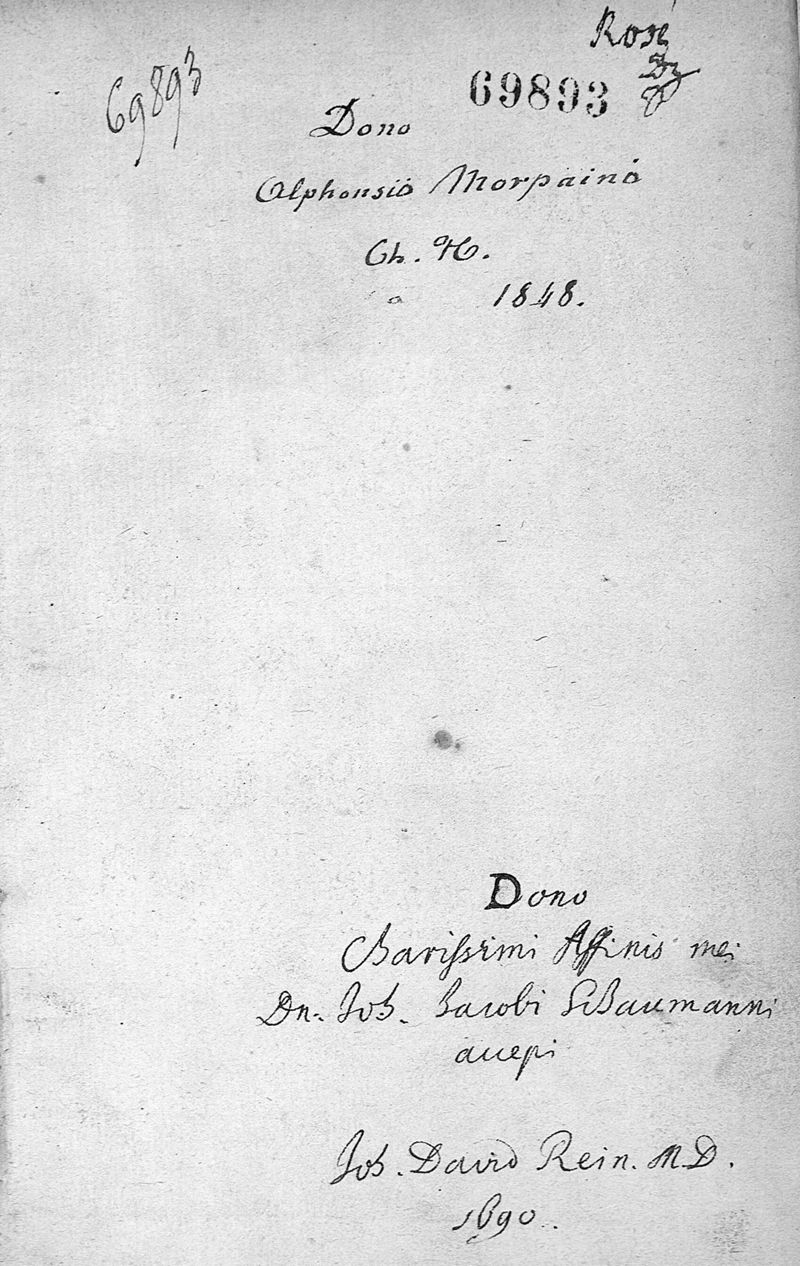 Rosé
69893
69893
Dono
Alphonsio Morpaino
Ch. H.
a 1848.
Dono
Charissimi Affinis mei
Dn. Joh. Jacobi Schaumanni
accepi
Joh. David Rein. MD.
1690.